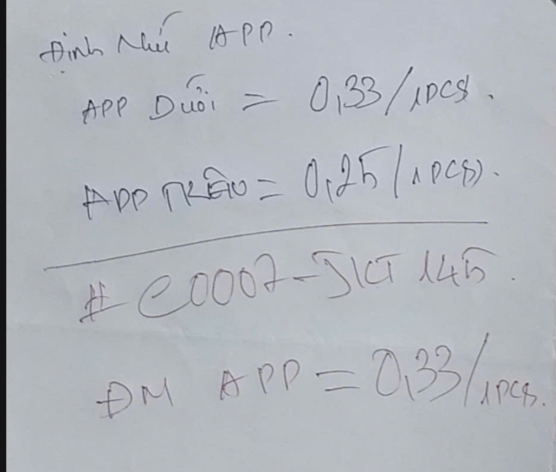 Định Mức APP.
APP Dưới = 0,33/1PCS.
APP TRÊN = 0,25/1PCS).
# C0007-JKT 145.
ĐM APP = 0,33/1PCS.